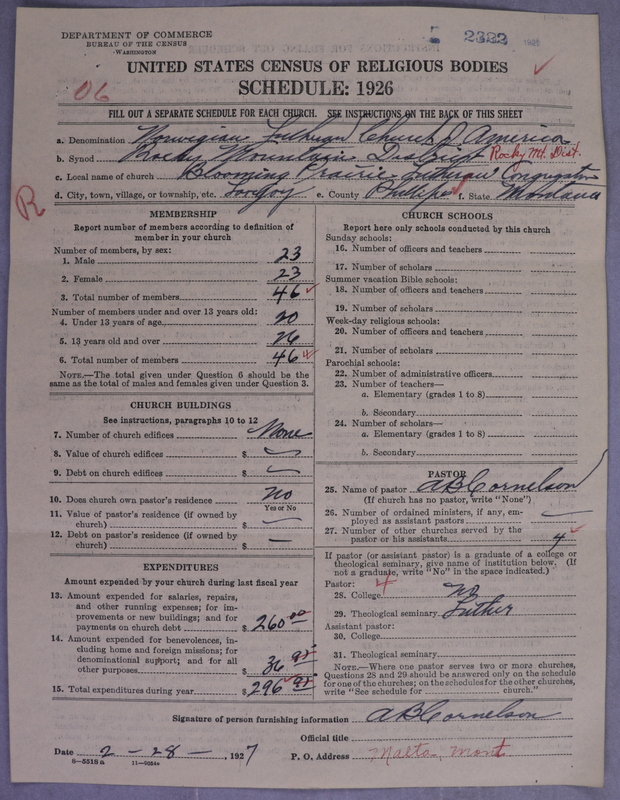 DEPARTMENT OF COMMERCE
BUREAU OF THE CENSUS
WASHINGTON
2322 1926
UNITED STATES CENSUS OF RELIGIOUS BODIES
SCHEDULE: 1926
06
FILL OUT A SEPARATE SCHEDULE FOR EACH CHURCH. SEE INSTRUCTIONS ON THE BACK OF THIS SHEET
a. Denomination Norwegian Lutheran Church of America
b. Synod Rocky Mountain District Rocky Mt. Dist.
c. Local name of church Blooming Prairie Lutheran Congregation
d. City, town, village, or township, etc. Lovejoy e. County Phillips f. State Montana
R
MEMBERSHIP
Report number of members according to definition of member in your church
Number of members, by sex:
1. Male 23
2. Female 23
3. Total number of members 46
Number of members under and over 13 years old:
4. Under 13 years of age 20
5. 13 years old and over 26
6. Total number of members 46
NOTE.—The total given under Question 6 should be the same as the total of males and females given under Question 3.
CHURCH BUILDINGS
See instructions, paragraphs 10 to 12
7. Number of church edifices None
8. Value of church edifices $
9. Debt on church edifices $
10. Does church own pastor's residence no
Yes or No
11. Value of pastor's residence (if owned by church) $
12. Debt on pastor's residence (if owned by church) $ —
EXPENDITURES
Amount expended by your church during last fiscal year
13. Amount expended for salaries, repairs, and other running expenses; for improvements or new buildings; and for payments on church debt $ 260 00
14. Amount expended for benevolences, including home and foreign missions; for denominational support; and for all other purposes $ 36 95
15. Total expenditures during year $ 296 95
CHURCH SCHOOLS
Report here only schools conducted by this church
Sunday schools:
16. Number of officers and teachers
17. Number of scholars
Summer vacation Bible schools:
18. Number of officers and teachers
19. Number of scholars
Week-day religious schools:
20. Number of officers and teachers
21. Number of scholars
Parochial schools:
22. Number of administrative officers
23. Number of teachers—
a. Elementary (grades 1 to 8)
b. Secondary
24. Number of scholars—
a. Elementary (grades 1 to 8)
b. Secondary
PASTOR
25. Name of pastor A B Cornelson
(If church has no pastor, write "None")
26. Number of ordained ministers, if any, employed as assistant pastors —
27. Number of other churches served by the pastor or his assistants 4
If pastor (or assistant pastor) is a graduate of a college or theological seminary, give name of institution below. (If not a graduate, write "No" in the space indicated.)
Pastor: 4
28. College no
29. Theological seminary Luther
Assistant pastor:
30. College
31. Theological seminary
NOTE.—Where one pastor serves two or more churches, Questions 28 and 29 should be answered only on the schedule for one of the churches; on the schedules for the other churches, write "See schedule for church."
Signature of person furnishing information A B Cornelson
Official title
Date 2-28-, 1927 P. O. Address Malta, Mont
8—5518a 11—9054a